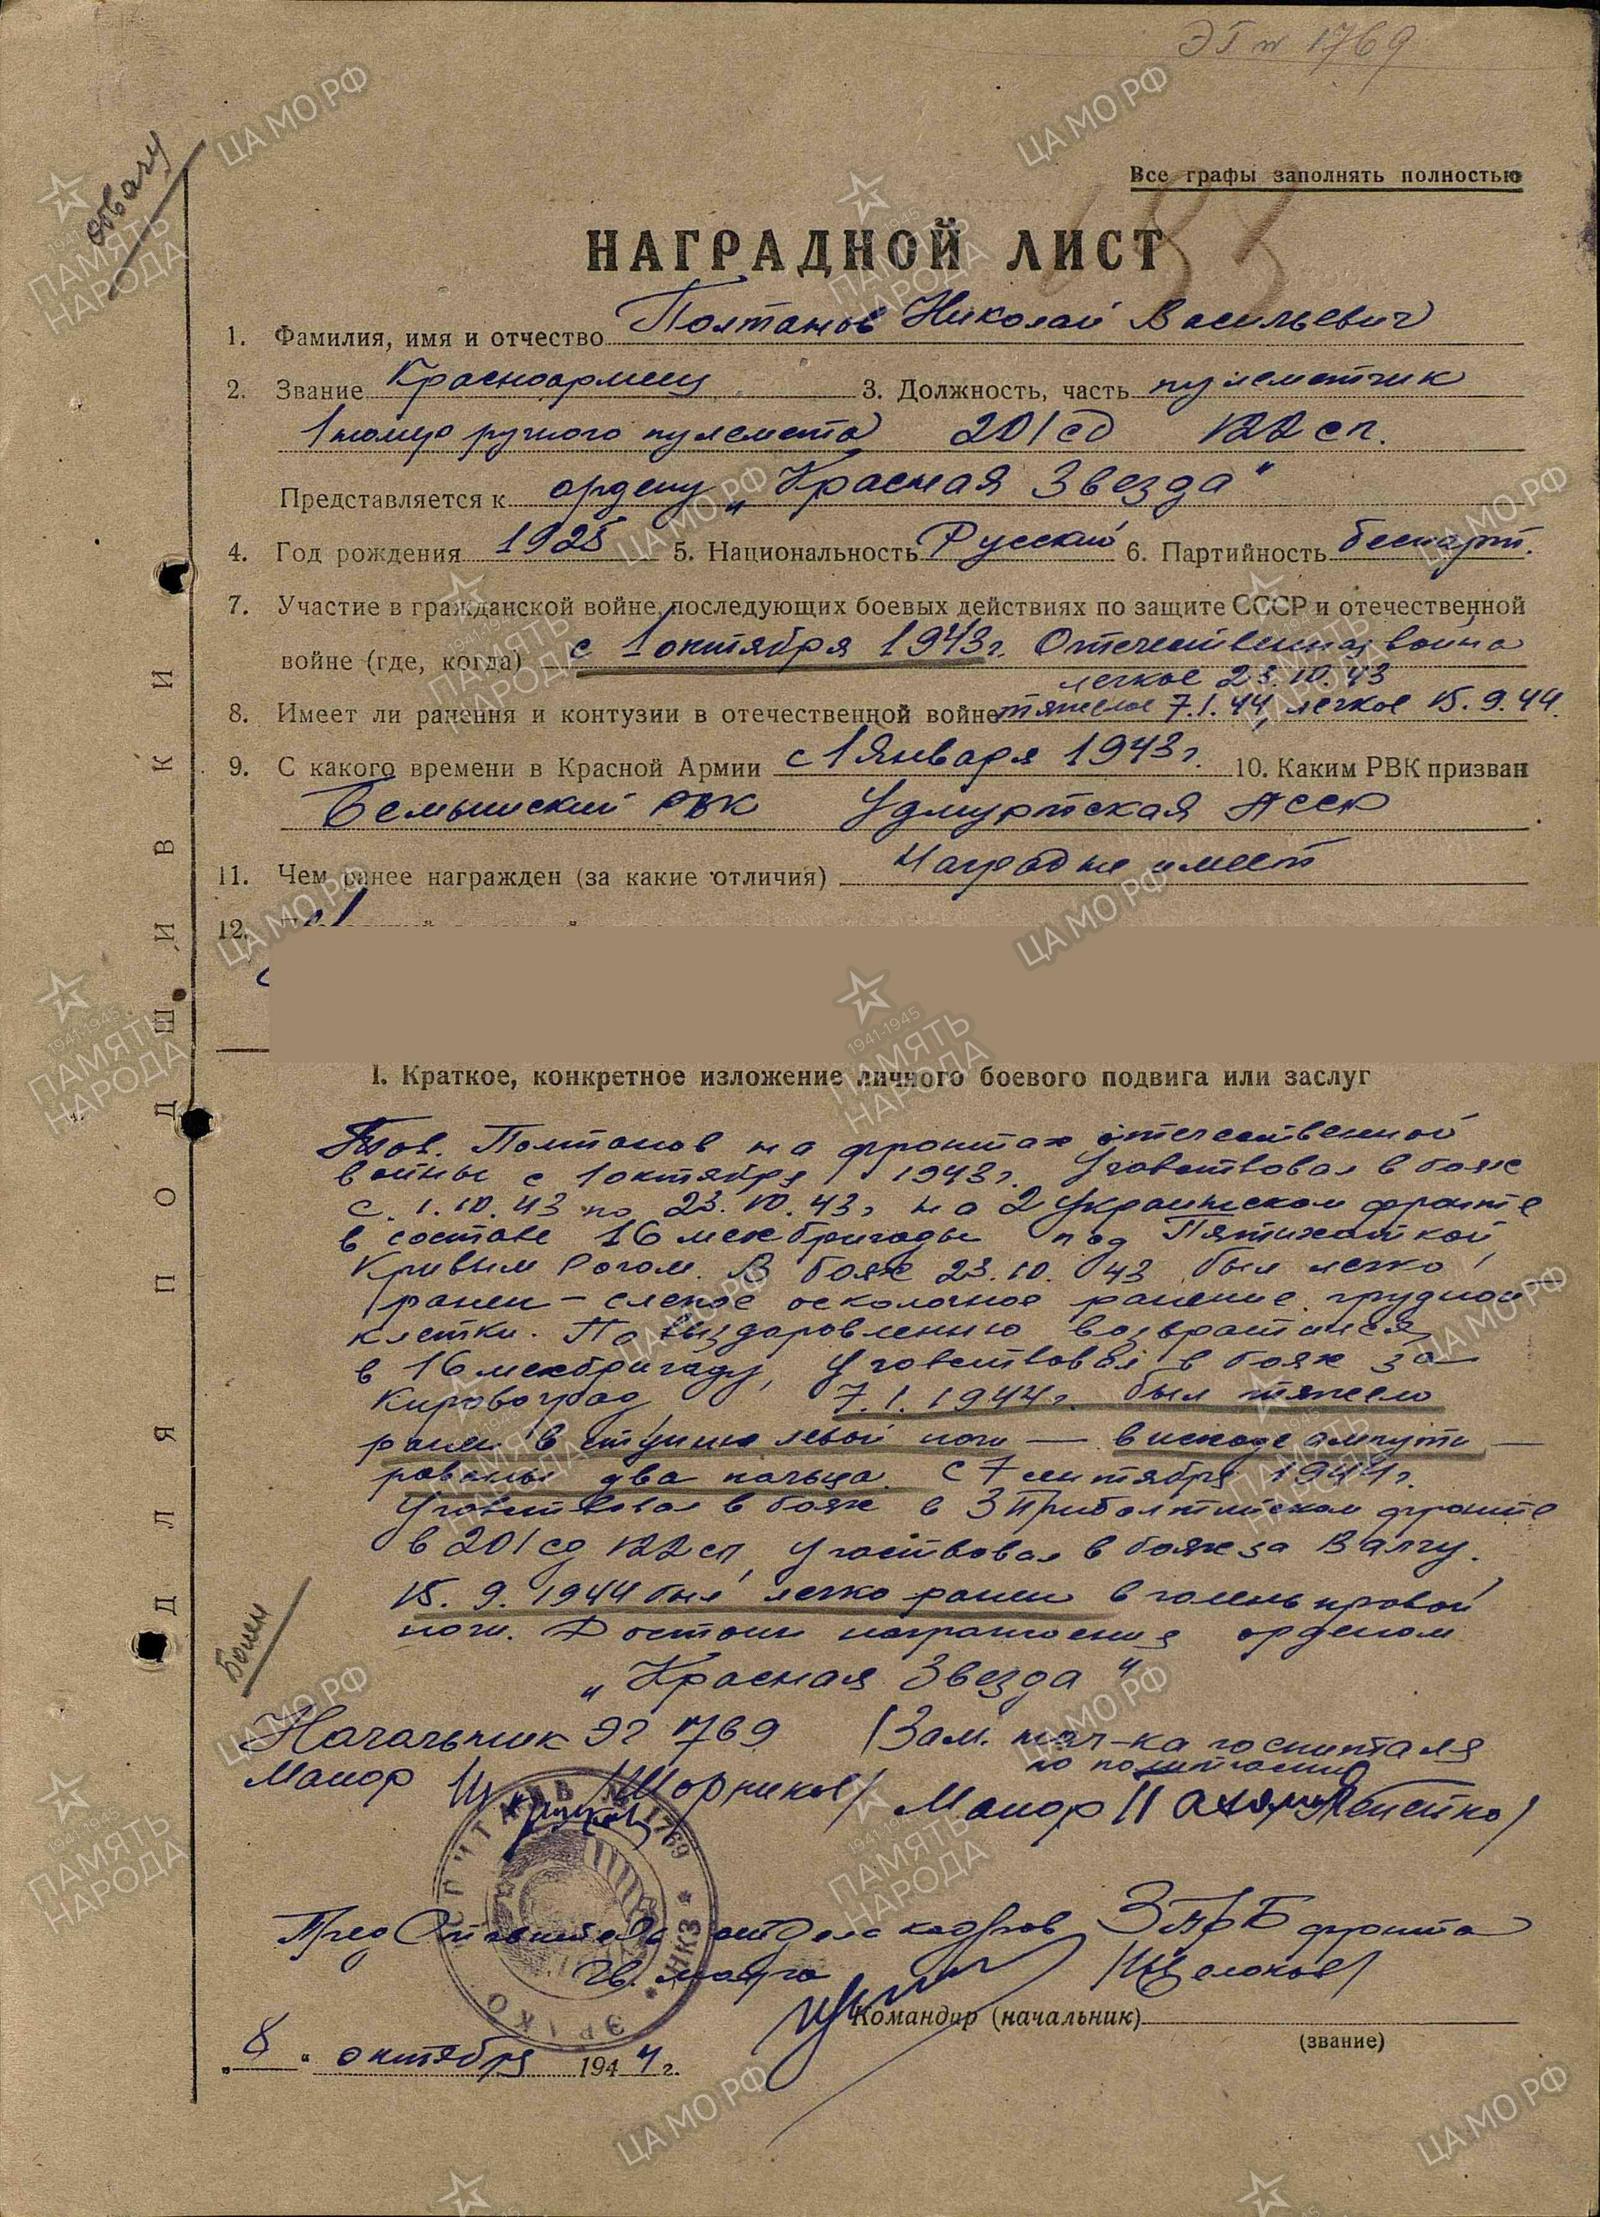 ЭГ № 1769
отвагу
Все графы заполнять полностью
НАГРАДНОЙ ЛИСТ
1. Фамилия, имя и отчество Полтанов Николай Васильевич
2. Звание Красноармеец 3. Должность, часть пулеметчик
1 номер ручного пулемета 201 сд 122 сп.
Представляется к ордену „Красная Звезда"
4. Год рождения 1925 5. Национальность Русский 6. Партийность беспарт.
7. Участие в гражданской войне, последующих боевых действиях по защите СССР и отечественной
войне (где, когда) с 1 октября 1943 г. Отечественная война
легкое 23.10.43
8. Имеет ли ранения и контузии в отечественной войне тяжелое 7.1.44, легкое 15.9.44.
9. С какого времени в Красной Армии с 1 января 1943 г. 10. Каким РВК призван
РВК Удмуртская АССР
11. Чем ранее награжден (за какие отличия) Наград не имеет
12.
ДЛЯ ПОДШИВКИ
I. Краткое, конкретное изложение личного боевого подвига или заслуг
Тов. Полтанов на фронтах отечественной
войны с 1 октября 1943 г. Участвовал в боях
с 1.10.43 по 23.10.43 г на 2 Украинском фронте
в составе 16 мехбригады под Пятихаткой,
Кривым Рогом. В боях 23.10.43 был легко
ранен – слепое осколочное ранение грудной
клетки. По выздоровлению возвратился
в 16 мехбригаду, Участвовал в боях за
Кировоград 7.1.1944 г. был тяжело
ранен в ступню левой ноги — в исходе ампути-
рованы два пальца. С 7 сентября 1944 г.
Участвовал в боях в 3 Прибалтийском фронте
в 201 сд 122 сп, участвовал в боях за Валгу.
15.9.1944 был легко ранен в голень правой
ноги. Достоин награждения орденом
„Красная Звезда"
Начальник ЭГ 1769 /Зам. нач-ка госпиталя
по политчасти
Майор /Шорников/ Майор
отдела кадров 3 Приб фронта
Гв. майор /Щелоков/
Командир (начальник)
(звание)
„8" октября 1944 г.
ГОСПИТАЛЬ № 1769 * НКЗ *
ЦА МО РФ
1941-1945
ПАМЯТЬ
НАРОДА